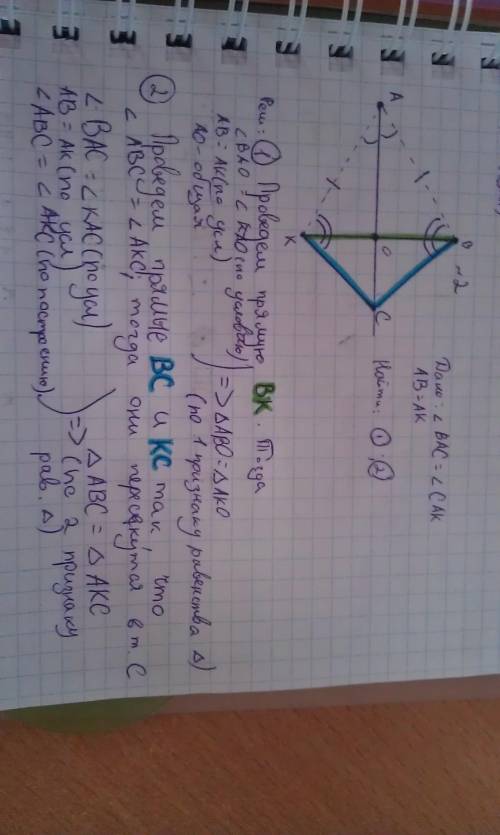 ~2
Дано: ∠BAC = ∠CAK
AB = AK
Найти: ① ; ②
A
B
K
O
C
Реш: ① Проведем прямую BK. Тогда
∠BAO = ∠KAO (по условию)
AB = AK (по усл)
AO - общая
=> △ABO = △AKO
(по 1 признаку равенства △)
② Проведем прямые BC и KC так, что
∠ABC = ∠AKC, тогда они пересекутся в т. C
∠BAC = ∠KAC (по усл)
AB = AK (по усл)
∠ABC = ∠AKC (по построению)
=> △ABC = △AKC
(по 2 признаку
рав. △)